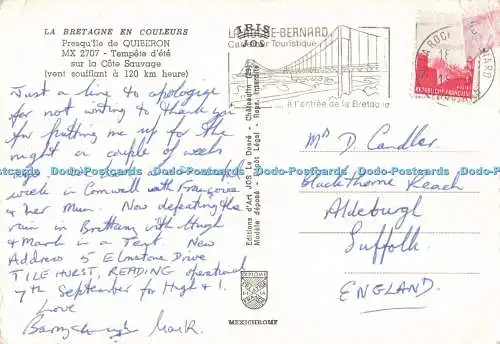 LA BRETAGNE EN COULEURS
Presqu'île de QUIBERON
MX 2707 - Tempête d'été
sur la Côte Sauvage
(vent soufflant à 120 km heure)
Just a line to apologise
for not writing to thank you
for putting me up for the
night a couple of weeks
ago
week in Cornwall with Françoise
& her Mum. Now defeating the
rain in Brittany with Hugh
& Mark in a Tent. New
Address 5 Elmstone Drive
TILEHURST, READING operational
7th September for Hugh & I.
Love
Barry Hugh Mark.
IRIS
JOS
LA ROCHE-BERNARD
Touristique
à l'entrée de la Bretagne
Editions d'Art JOS Le Doaré - Châteaulin
Modèle déposé - Dépôt Légal - Repr. interdite
DIPLOME
MEXICHROME
REPUBLIQUE FRANCAISE
Mrs D. Candler.
Blackthorne Reach
Aldeburgh
Suffolk
ENGLAND.
Dodo-Postcards Dodo-Postcards Dodo-Postcards Dodo-Postcards Dodo-Postcards Dodo-Postcards